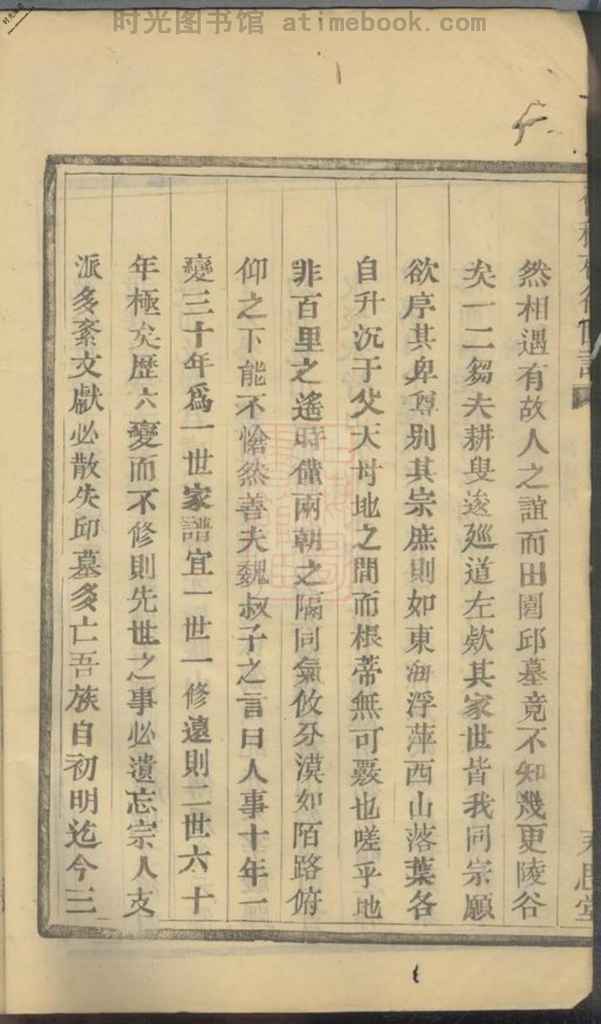 时光图书馆 atimebook.com
然相遇有故人之誼而田園邱墓竟不知幾更陵谷
矣一二芻夫耕叟逡廵道左欸其家世皆我同宗願
欲序其卑尊别其宗庶則如東海浮萍西山落葉各
自升沉于父天母地之間而根蒂無可覈也嗟乎地
非百里之遙時僅兩朝之隔同氣攸分漠如陌路俯
仰之下能不愴然善夫魏叔子之言曰人事十年一
變三十年爲一世家譜宜一世一修遠則二世六十
年極矣歷六變而不修則先世之事必遺忘宗人支
派多紊文獻必散失邱墓多亡吾族自初明迄今三